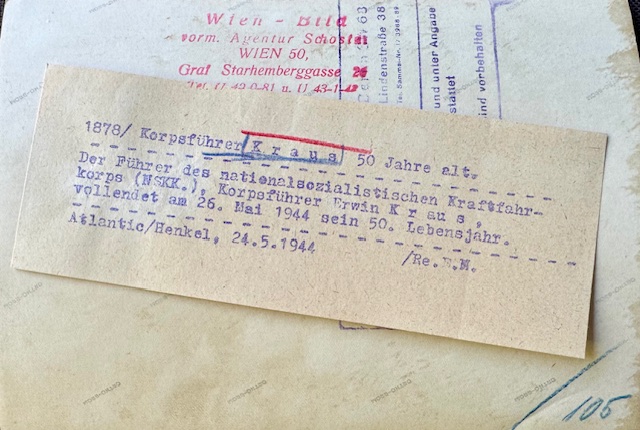 Wien - Bild
vorm. Agentur Schostal
WIEN 50,
Graf Starhemberggasse 26
Tel. U 49-0-81 u. U 43-1-42
Lindenstraße 38
und unter Angabe
stattet
ind vorbehalten
1878/ Korpsführer K r a u s 50 Jahre alt.
Der Führer des nationalsozialistischen Kraftfahr-
korps (NSKK.), Korpsführer Erwin K r a u s ,
vollendet am 26. Mai 1944 sein 50. Lebensjahr.
Atlantic/Henkel, 24.5.1944 /Re.E.M.
105